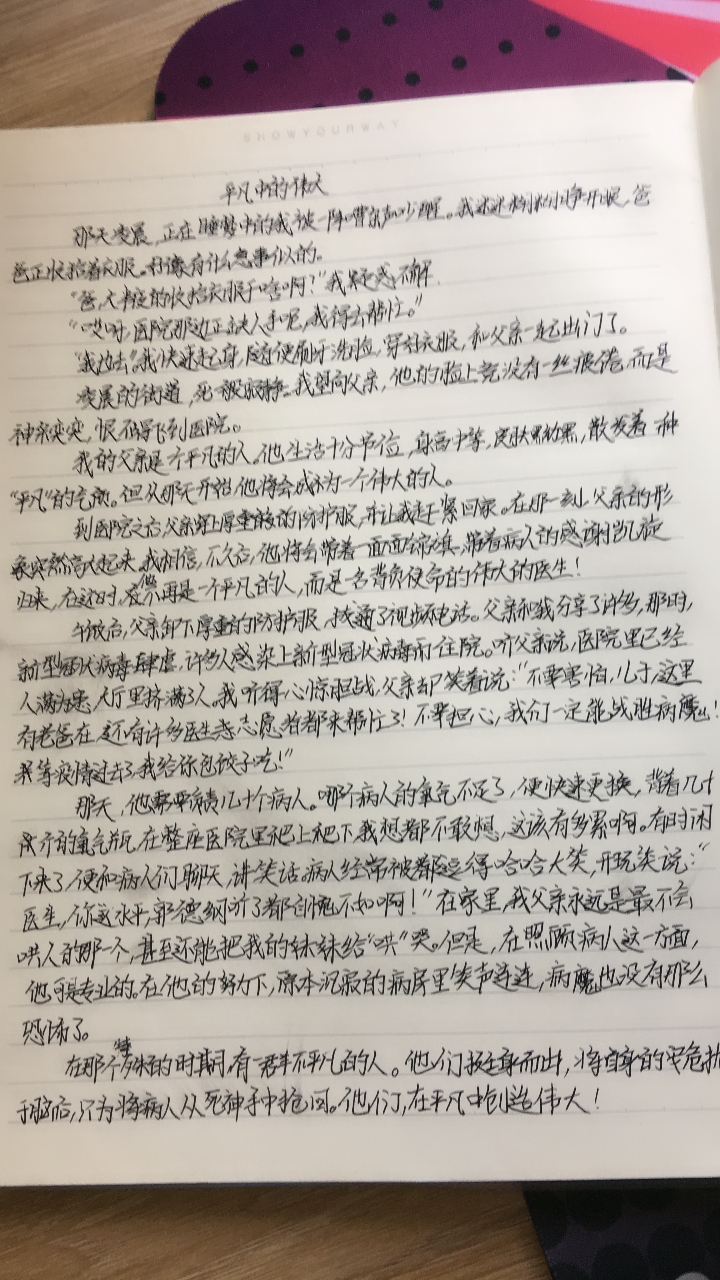 SHOWYOURWAY
平凡中的伟大
那天凌晨,正在睡梦中的我被一阵嘈杂声吵醒。我迷迷糊糊睁开眼,爸
爸正收拾着衣服。好像有什么急事似的。
"爸,大半夜的收拾衣服干啥啊?"我疑惑不解
"哎呀,医院那边正缺人手呢,我得去帮忙。"
"我也去"我快速起身,随便刷牙洗脸,穿好衣服,和父亲一起出门了。
凌晨的街道,死一般寂静。我望向父亲,他的脸上竟没有一丝疲倦,而是
神采奕奕,恨不得飞到医院。
我的父亲是个平凡的人。他生活十分节俭,身高中等,皮肤黝黑,散发着一种
"平凡"的气质。但从那天开始,他将会成为一个伟大的人。
到医院之后父亲穿上厚重的防护服,并让我赶紧回家。在那一刻,父亲的形
象突然高大起来。我相信,不久后,他将会带着一面面锦旗,带着病人的感谢凯旋
归来,在这时,他不再是一个平凡的人,而是一名背负使命的伟大的医生!
午饭后,父亲卸下厚重的防护服,拨通了视频电话。父亲和我分享了许多,那时,
新型冠状病毒肆虐,许多人感染上新型冠状病毒而住院。听父亲说,医院里已经
人满为患,大厅里挤满了人。我听得心惊胆战,父亲却笑着说:"不要害怕,儿子,这里
有老爸在,还有许多医生志愿者都来帮忙了!不要担心,我们一定能战胜病魔!
等疫情过去了,我给你包饺子吃!"
那天,他需要负责几十个病人。哪个病人的氧气不足了,便快速更换,背着几十
公斤的氧气瓶,在整座医院里爬上爬下,我想都不敢想,这该有多累啊。有时闲
下来了,便和病人们聊天,讲笑话。病人经常被都逗得哈哈大笑,开玩笑说:"
医生,你这水平,郭德纲听了都自愧不如啊!"在家里,我父亲永远是最不会
哄人的那一个,甚至还能把我的妹妹给"哄"哭。但是,在照顾病人这一方面,
他可是专业的。在他的努力下,原本沉寂的病房里笑声连连,病魔也没有那么
恐怖了。
在那个特殊的时期,有一群不平凡的人。他们挺身而出,将自身的安危抛
于脑后,只为将病人从死神手中抢回。他们,在平凡中创造伟大!